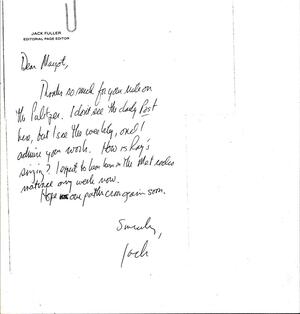 JACK FULLER
EDITORIAL PAGE EDITOR
Dear Margot,
Thanks so much for your note on
the Pulitzer. I don't see the daily Post
here, but I see the weekly, and I
admire your work. How is Ray's
singing? I expect to hear him on the Met radio
matinee any week now.
Hope our paths cross again soon.
Sincerely,
Jack